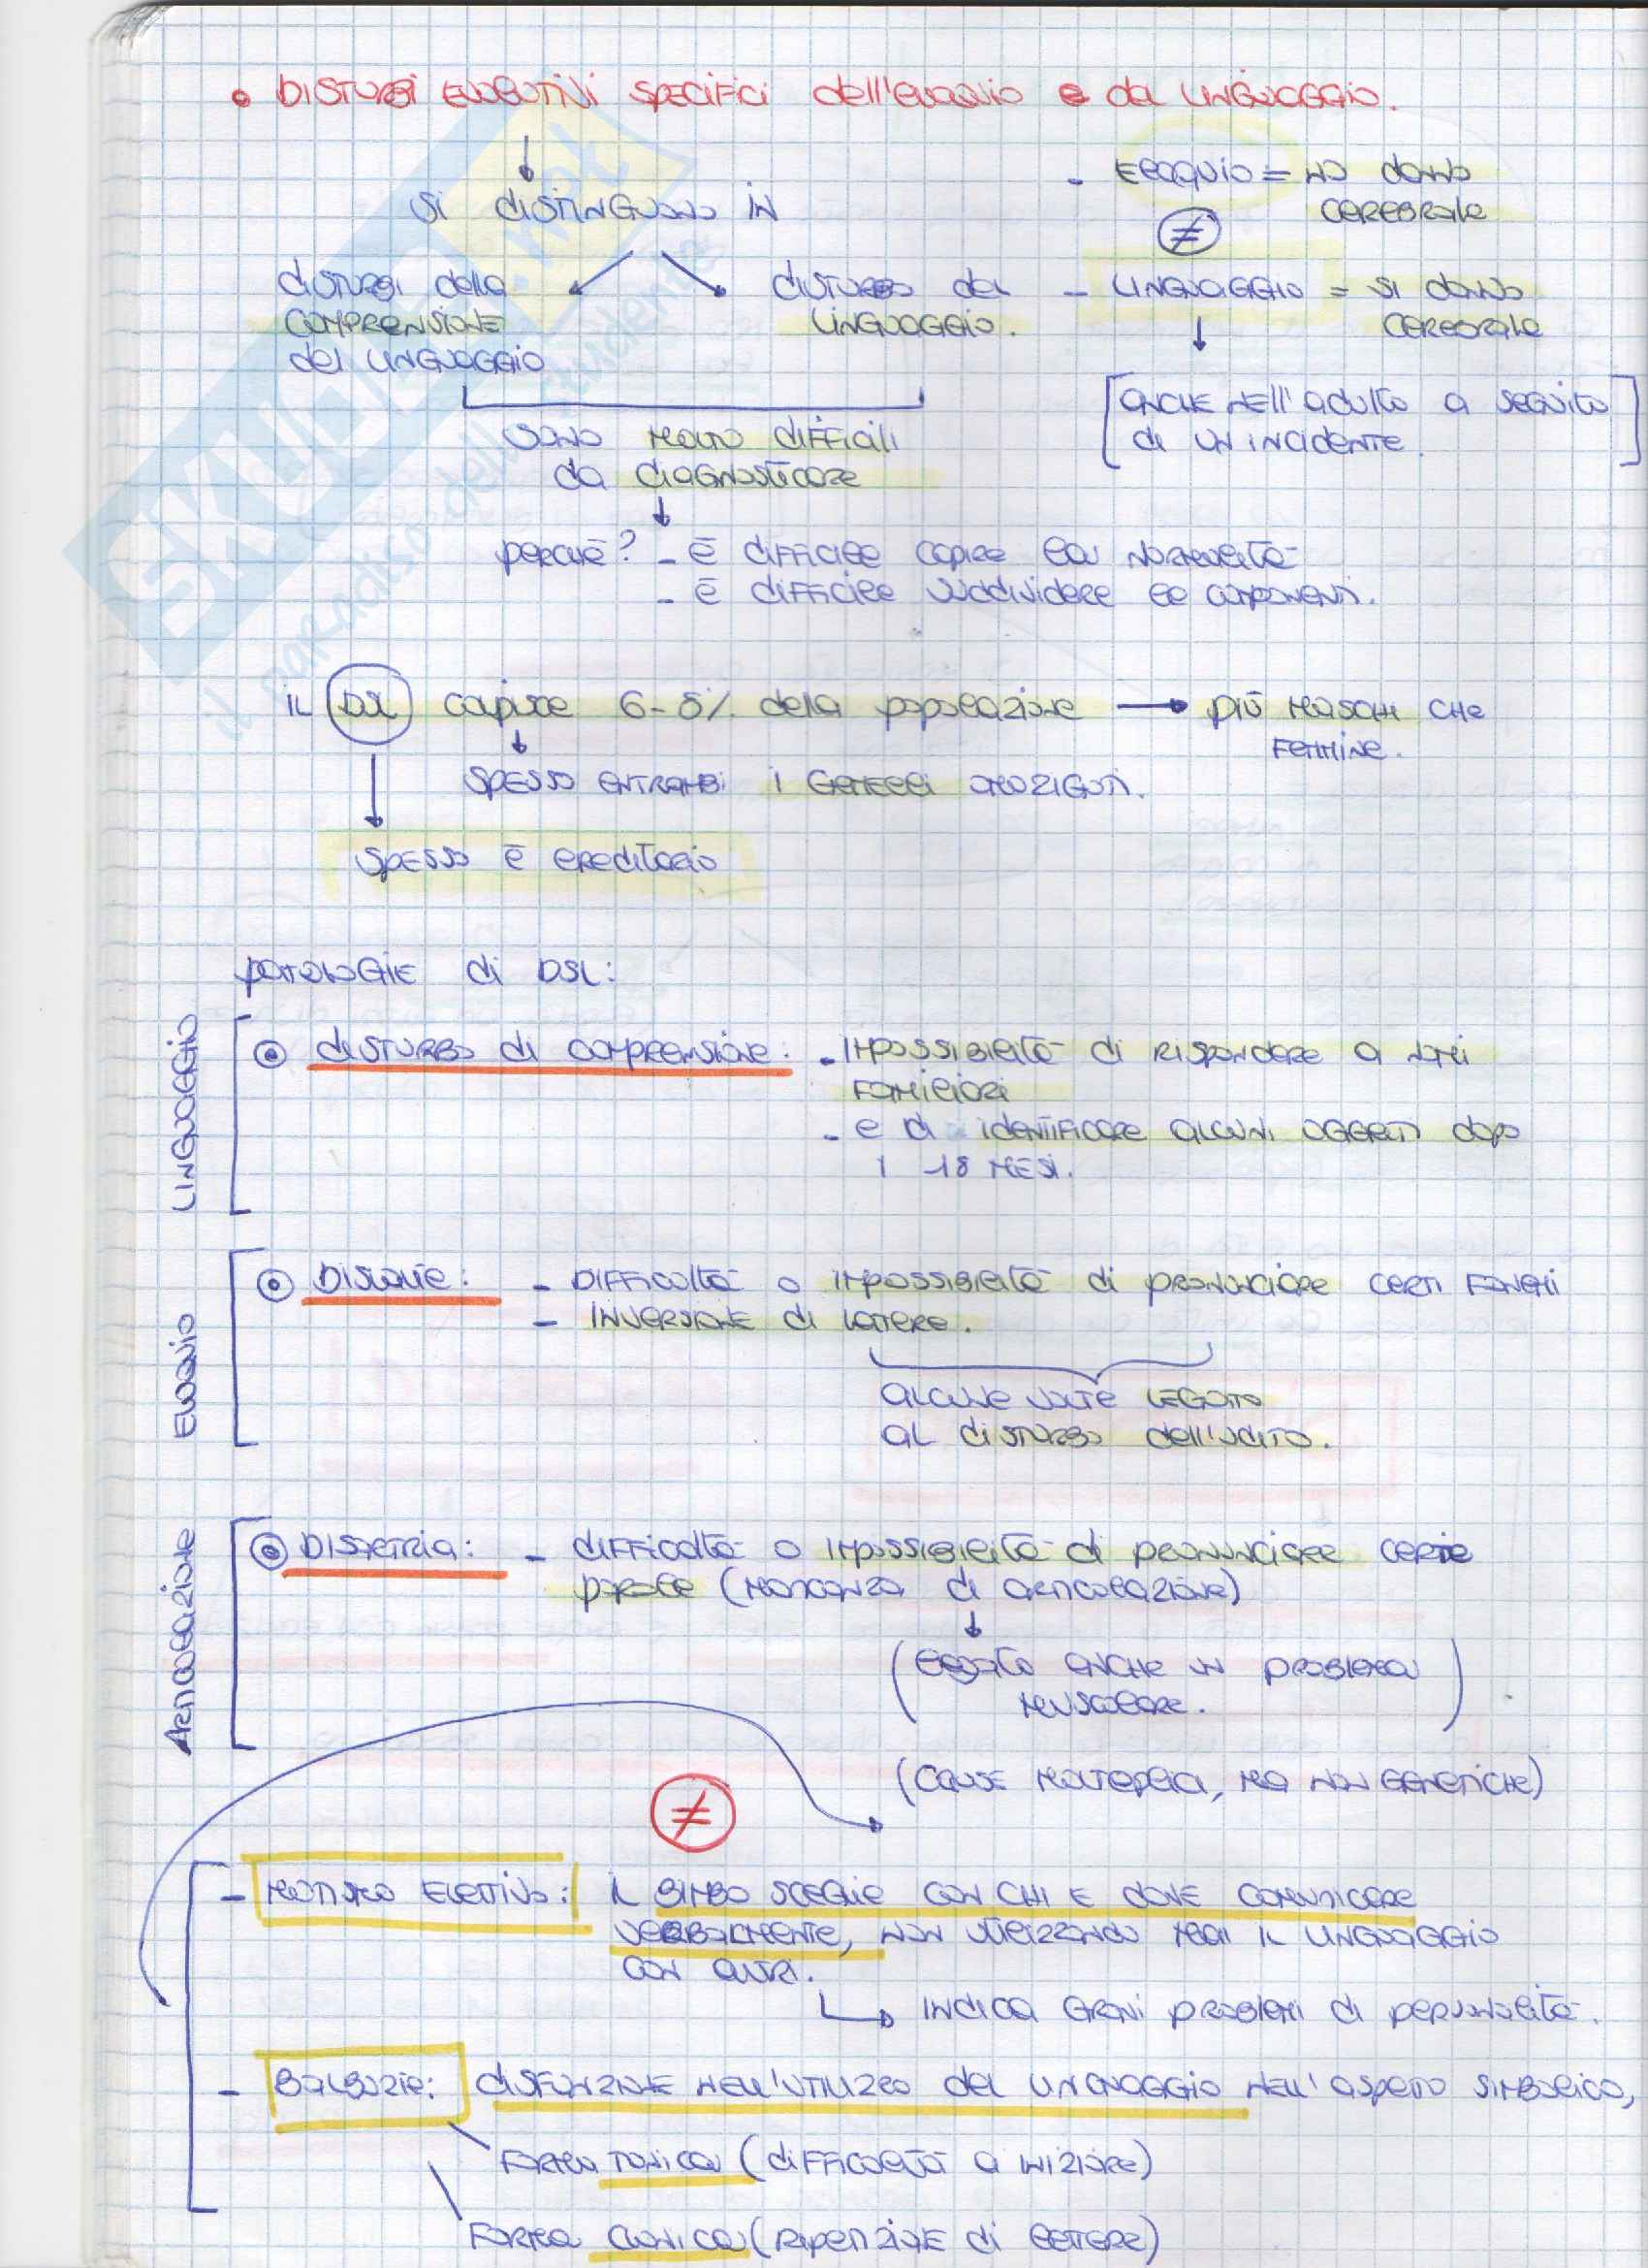 • DISTURBI EVOLUTIVI SPECIFICI dell'eloquio e del LINGUAGGIO.
SI distinguono IN
disturbi della COMPRENSIONE del LINGUAGGIO
disturbo del LINGUAGGIO.
- Eloquio = NO danno CEREBRALE
≠
- LINGUAGGIO = SI danno CEREBRALE
[ANCHE NELL'adulto a seguito di UN INCIDENTE.]
sono molto difficili
da diagnosticare
perché? - è difficile capire la normalità
- è difficile suddividere le componenti.
IL DSL colpisce 6-8% della popolazione → più maschi CHE
FEMMINE.
SPESSO ENTRAMBI I GEMELLI OMOZIGOTI.
SPESSO è ereditario
patologie di DSL:
LINGUAGGIO
⊙ disturbo di comprensione: - IMPOSSIBILITÀ di RISPONDERE a nomi
familiari
- e di identificare alcuni oggetti dopo
i 18 MESI.
Eloquio
⊙ Dislalie: - DIFFICOLTÀ o IMPOSSIBILITÀ di pronunciare certi FONEMI
- INVERSIONE di lettere.
alcune volte LEGATO
al disturbo dell'udito.
Articolazione
⊙ Disartria: - difficoltà o impossibilità di pronunciare certe
parole (mancanza di articolazione)
(legato anche un problema
muscolare.)
(cause , ma non genetiche)
≠
- Mutismo Elettivo: il BIMBO SCEGLIE CON CHI E DOVE COMUNICARE
VERBALMENTE, NON utilizzando mai il LINGUAGGIO
CON altri.
↳ INDICA GRAVI problemi di personalità.
- Balbuzie: disfunzione nell'utilizzo del LINGUAGGIO nell'aspetto simbolico,
Forma TONICA (difficoltà a iniziare)
Forma CLONICA (ripetizione di lettere)
SKUOLA.net
il paradiso dello studente